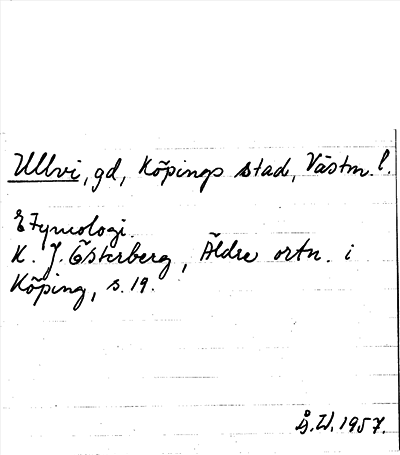 Ullvi, gd, Köpings stad, Västm. l.
Etymologi.
K. J. Österberg, Äldre ortn. i
Köping, s. 19.
Å. W. 1957.